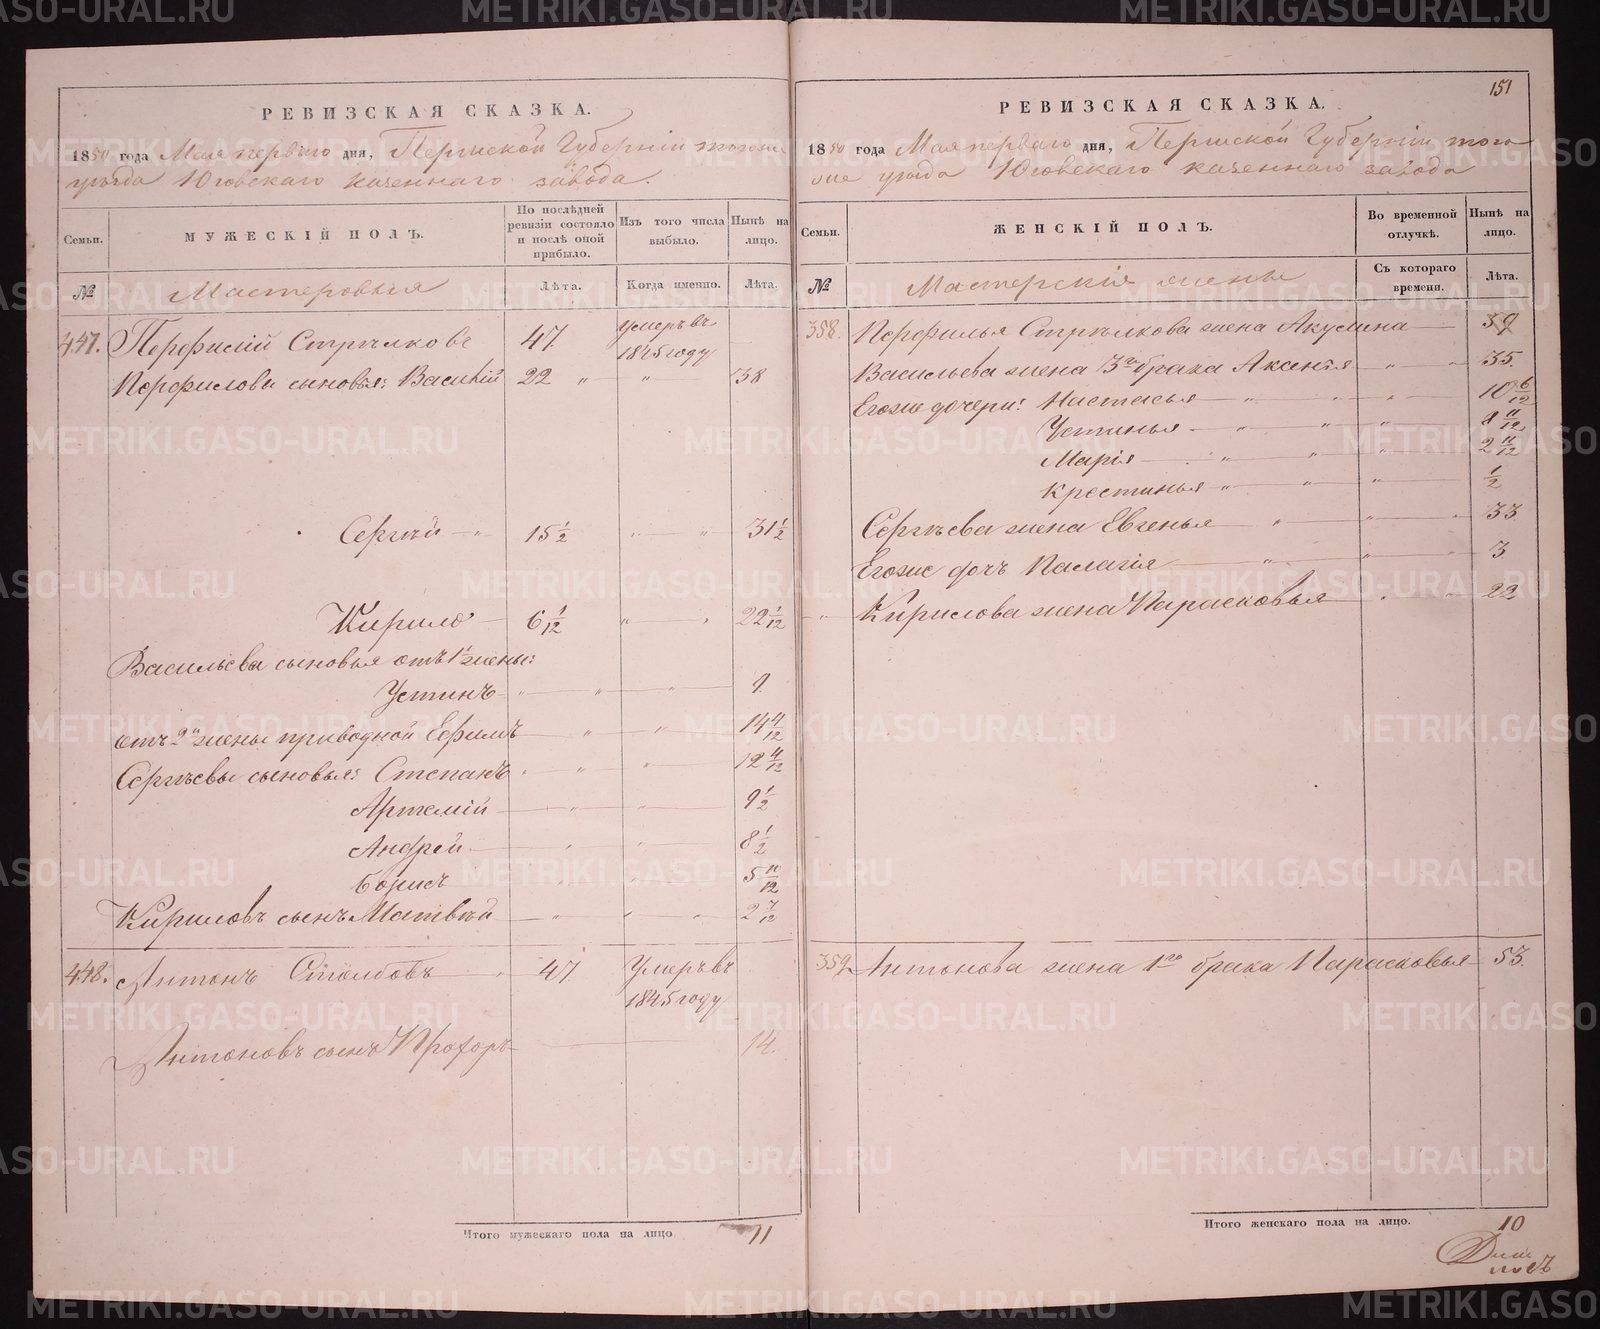 РЕВИЗСКАЯ СКАЗКА.
1850 года Мая перваго дня, Пермской Губерніи тогоже
уѣзда Юговскаго казеннаго завода.
Семьи.
МУЖЕСКІЙ ПОЛЪ.
По послѣдней ревизіи состояло и послѣ оной прибыло.
Изъ того числа выбыло.
Нынѣ на лицо.
№
Мастеровыя
Лѣта.
Когда именно.
Лѣта.
447. Перфилій Стрѣлковъ 47. умеръ въ 1845 году
Перфилова сыновья: Василій 22 " " 38
Сергѣй " 15 1/2 " " 31 1/2
Кирило 6 1/12 " " 22 1/12
Васильева сыновья отъ 1й жены:
Устинъ " " " 9.
отъ 2й жены приводной Ефимъ " " 14 4/12
Сергѣевы сыновья: Степанъ " " " 12 4/12
Артемій " " 9 1/2
Андрей " " 8 1/2
Борисъ " " 5 10/12
Кириловъ сынъ Матвѣй " " " 2 7/12
448. Антонъ Столбовъ " 47 Умеръ въ 1845 году
Антоновъ сынъ Прохоръ 14.
Итого мужескаго пола на лицо 11
151
РЕВИЗСКАЯ СКАЗКА.
1850 года Мая перваго дня, Пермской Губерніи того
же уѣзда Юговскаго казеннаго завода
Семьи.
ЖЕНСКІЙ ПОЛЪ.
Во временной отлучкѣ.
Нынѣ на лицо.
№
Мастерскія жены
Съ котораго времени.
Лѣта.
358. Перфилья Стрѣлкова жена Акулина 59
Васильева жена 3го брака Аксинья " " 35.
Егоже дочери: Настасья " " " 10 6/12
Устинья " " " 8 11/12
Марія " " " 2 11/12
Крестинья " " " 1/2
Сергѣева жена Евгенья " " " 33
Егоже дочь Палагія " " " 3
" Кирилова жена Парасковья " " 22
359. Антонова жена 1го брака Парасковья 53.
Итого женскаго пола на лицо. 10